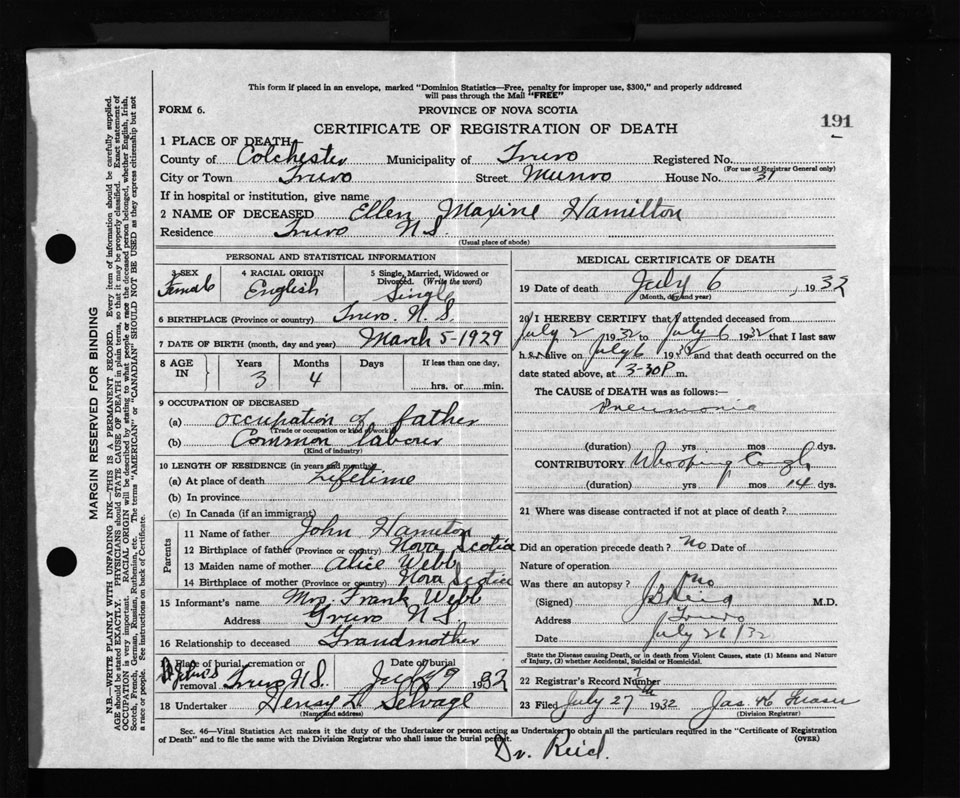 This form if placed in an envelope, marked "Dominion Statistics—Free, penalty for improper use, $300," and properly addressed
will pass through the Mail "FREE"
FORM 6. PROVINCE OF NOVA SCOTIA
CERTIFICATE OF REGISTRATION OF DEATH 191
1 PLACE OF DEATH
County of Colchester Municipality of Truro Registered No.
(For use of Registrar General only)
City or Town Truro Street Munro House No. 31
If in hospital or institution, give name
2 NAME OF DECEASED Ellen Maxine Hamilton
Residence Truro N S.
(Usual place of abode)
PERSONAL AND STATISTICAL INFORMATION
3 SEX 4 RACIAL ORIGIN 5 Single, Married, Widowed or
Divorced. (Write the word)
Female English Single
6 BIRTHPLACE (Province or country) Truro. N. S.
7 DATE OF BIRTH (month, day and year) March 5-1929
8 AGE IN Years Months Days If less than one day,
3 4 hrs. or min.
9 OCCUPATION OF DECEASED
(a) Occupation of father
(Trade or occupation or kind of work)
(b) Common labour
(Kind of industry)
10 LENGTH OF RESIDENCE (in years and months)
(a) At place of death Lifetime
(b) In province
(c) In Canada (if an immigrant)
Parents
11 Name of father John Hamilton
12 Birthplace of father (Province or country) Nova Scotia
13 Maiden name of mother Alice Webb
14 Birthplace of mother (Province or country) Nova Scotia
15 Informant's name Mrs. Frank Webb
Address Truro N S.
16 Relationship to deceased Grandmother
17 Place of burial, cremation or removal Date of burial
St John's Truro N S. July 9 1932
18 Undertaker Selvage
(Name and address)
MEDICAL CERTIFICATE OF DEATH
19 Date of death July 6, 1932
(Month, day and year)
20 I HEREBY CERTIFY that I attended deceased from
July 2 1932 to July 6 1932 that I last saw
h er alive on July 6 1932 and that death occurred on the
date stated above, at 3-30 P m.
The CAUSE OF DEATH was as follows:—
Pneumonia
(duration) yrs mos dys.
CONTRIBUTORY Whooping Cough
(duration) yrs mos 14 dys.
21 Where was disease contracted if not at place of death?
Did an operation precede death? no Date of
Nature of operation
Was there an autopsy? no
(Signed) Reid M.D.
Address Truro
Date July 26/32
State the Disease causing Death, or in death from Violent Causes, state (1) Means and
Nature of Injury, (2) whether Accidental, Suicidal or Homicidal.
22 Registrar's Record Number
23 Filed July 27th 1932 Jas Fraser
(Division Registrar)
Sec. 46—Vital Statistics Act makes it the duty of the Undertaker or person acting as Undertaker to obtain all the particulars required in the "Certificate of Registration
of Death" and to file the same with the Division Registrar who shall issue the burial permit. (OVER)
Dr. Reid.
MARGIN RESERVED FOR BINDING
N.B.—WRITE PLAINLY WITH UNFADING INK—THIS IS A PERMANENT RECORD. Every item of information should be carefully supplied.
AGE should be stated EXACTLY. PHYSICIANS should STATE CAUSE OF DEATH in plain terms, so that it may be properly classified. Exact statement of
OCCUPATION is very important. RACIAL ORIGIN will be described by stating to what people or race the deceased person belonged, whether English, Irish,
Scotch, French, German, Russian, Ruthenian, etc. The terms "AMERICAN" or "CANADIAN" SHOULD NOT BE USED as they express citizenship but not
a race or people. See instructions on back of Certificate.